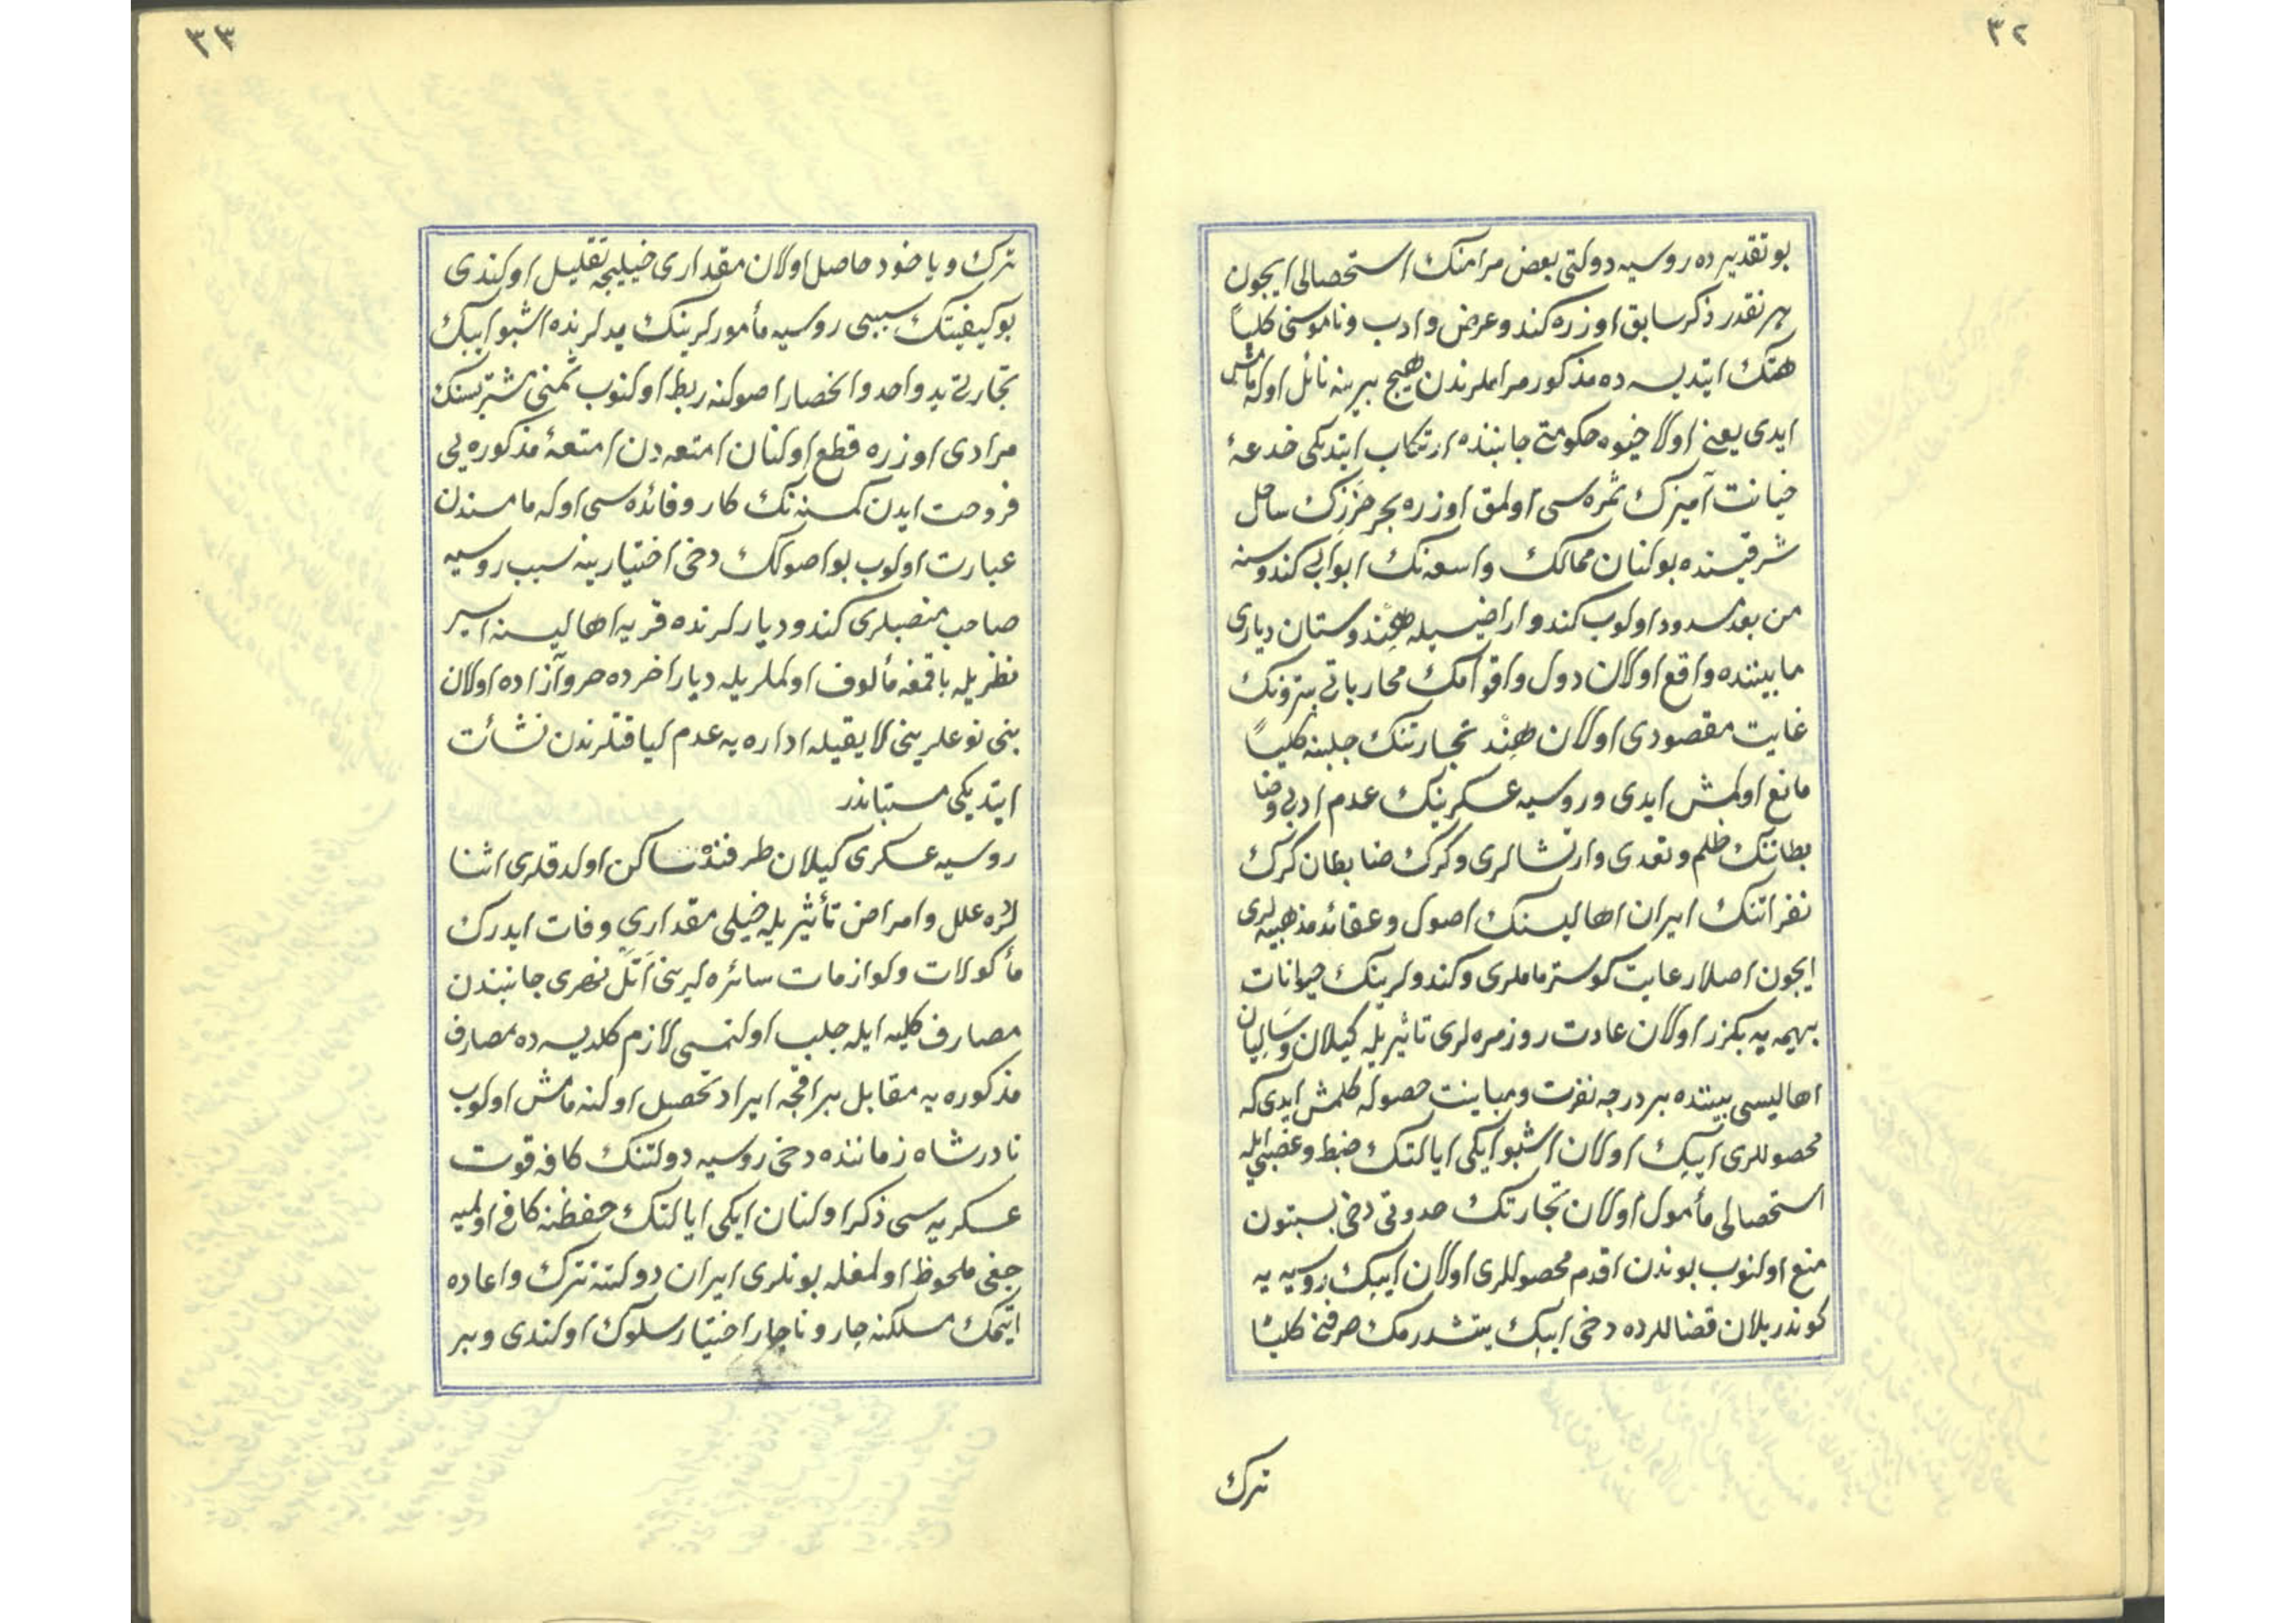 ٣٢
بو تقدیرده روسیه دولتی بعض مرامنك استحصالی ایچون
هر نقدر ذكر سابق اوزره كندو عرض و ادب و ناموسنی كلیاً
هتك ایتدیسه ده مذكور مراملرندن هیچ بیرینه نائل اوله‌مامش
ایدی یعنی اولا خیوه حكومتی جانبنده ارتكاب ایتدیكی خدعهٔ
خیانت آمیزك ثمره‌سی اولمق اوزره بحر خزرك ساحل
شرقیسنده بولنان ممالك واسعه‌نك ابوابی كندوسنه
من بعد مسدود اولوب كندو اراضیسیله هندوستان دیاری
مابیننده واقع اولان دول و اقوامك محارباتی پترونك
غایت مقصودی اولان هند تجارتنك جلبنه كلیاً
مانع اولمش ایدی و روسیه عسكرینك عدم ادبی و ضا
بطاننك ظلم و تعدی و ارتشالری و كرك ضابطان كرك
نفراتنك ایران اهالیسنك اصول و عقائد مذهبیه‌لری
ایچون اصلا رعایت كوسترماملری و كندولرینك حیوانات
بهیمه‌یه بكزر اولان عادت روزمره‌لری تأثیریله كیلان و سالیان
اهالیسی بیننده بر درجه نفرت و مباینت حصوله كلمش ایدی كه
محصوللری ایپك اولان اشبو ایكی ایالتك ضبط و غصبی ایله
استحصالی مأمول اولان تجارتك حدوثی دخی بسبتون
منع اولنوب بوندن اقدم محصوللری اولان ایپك روسیه یه
كوندریلان قضالرده دخی ایپك یتشدرمك صرفنی كلیاً
ترك
٣٣
ترك و یاخود حاصل اولان مقداری خیلیجه تقلیل اولندی
بو كیفیتك سببی روسیه مأمورلرینك یدلرنده اشبو ایپك
تجارتی ید واحد و انحصار اصولنه ربط اولنوب ثمنی مشتریسنك
مرادی اوزره قطع اولنان امتعه‌دن امتعهٔ مذكوره‌یی
فروخت ایدن كمسنه‌نك كار و فائده‌سی اوله‌مامسندن
عبارت اولوب بو اصولك دخی اختیارینه سبب روسیه
صاحب منصبلری كندو دیارلرنده قریه اهالیسنه اسیر
نظریله باقمغه مألوف اولملریله دیار اخرده حر و آزاده اولان
بنی نوعلرینی لایقیله اداره‌یه عدم لیاقتلرندن نشأت
ایتدیكی مستباندر
روسیه عسكری كیلان طرفنده ساكن اولدقلری اثنا
لرده علل و امراض تأثیریله خیلی مقداری وفات ایدرك
مأكولات و لوازمات سائره‌لرینی اتل نهری جانبندن
مصارف كلیه ایله جلب اولنمسی لازم كلدیسه ده مصارف
مذكوره‌یه مقابل بر اقچه ایراد تحصیل اولنه‌مامش اولوب
نادرشاه زماننده دخی روسیه دولتنك كافه قوت
عسكریه‌سی ذكر اولنان ایكی ایالتك حفظنه كافی اولمیه
جغی ملحوظ اولمغله بونلری ایران دولتنه ترك و اعاده
ایتمك مسلكنه چار و ناچار اختیار سلوك اولندی و بر